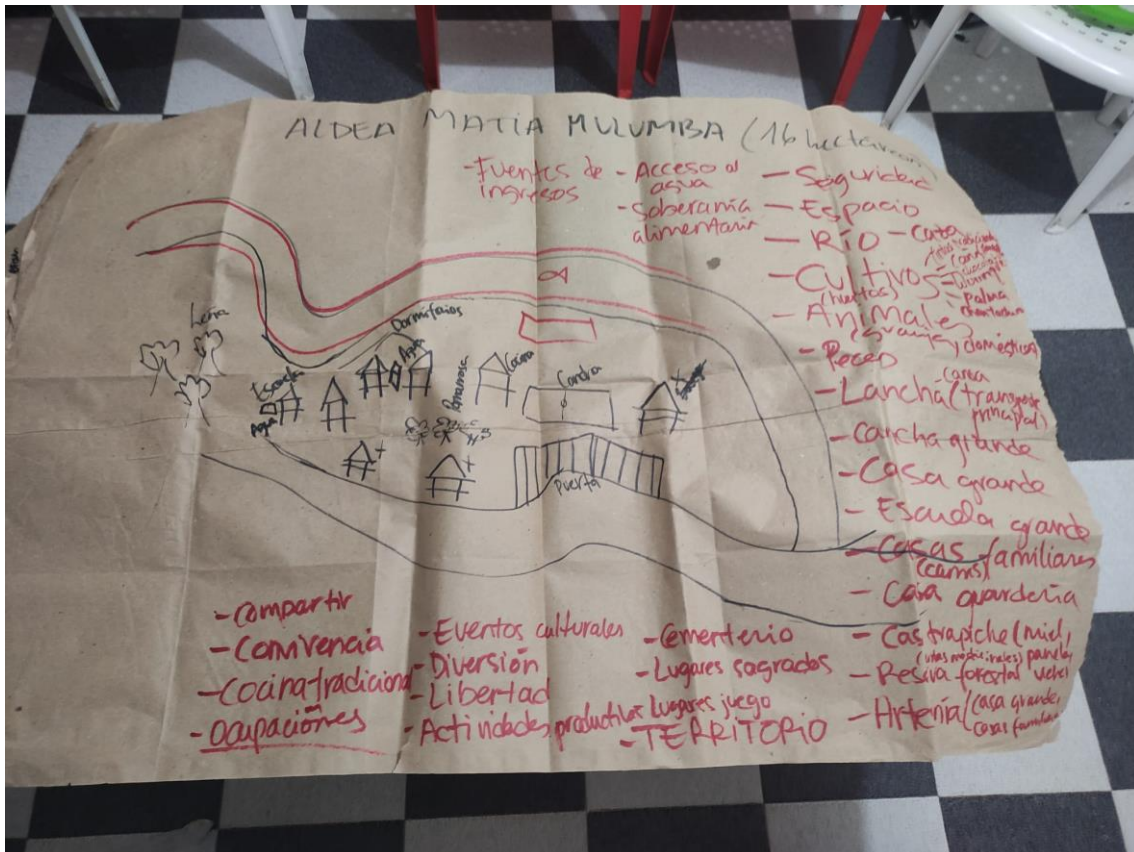 ALDEA MATÍA MULUMBA (16 hectáreas)
- Fuentes de
ingresos
- Acceso al
agua
- Soberanía
alimentaria
- Seguridad
- Espacio
- RÍO - Caza
- Cultivos
(huertos)
palma
- Animales
(granja y domésticos)
- Peces
- Lancha (transporte
principal)
canoa
- Cancha grande
- Casa grande
- Escuela grande
- Casas familiares
- Casa guardería
- Casa trapiche (miel,
panela,
- Reserva forestal
- Artesanía (casa grande,
casas familiares
Leña
Dormitorios
Agua
Cocina
Escuela
Agua
Pomarrosa
Cancha
Puerta
- Compartir
- Convivencia
- Cocina tradicional
- Ocupaciones
- Eventos culturales
- Diversión
- Libertad
- Actividades productivas
- Cementerio
- Lugares sagrados
Lugares juego
- TERRITORIO